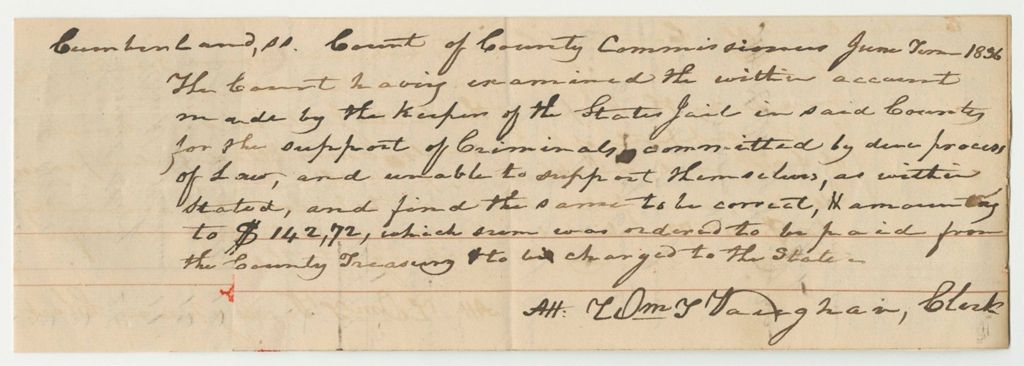 Cumberland, ss. Court of County Commissioners June Term 1836
The Court having examined the within account
made by the Keeper of the States Jail in said County
for the support of Criminals, committed by due process
of Law, and unable to support themselves, as within
stated, and find the same to be correct, & amounting
to $142,72, which sum was ordered to be paid from
the County Treasury & to be charged to the State.
Att: Vaughan, Clerk